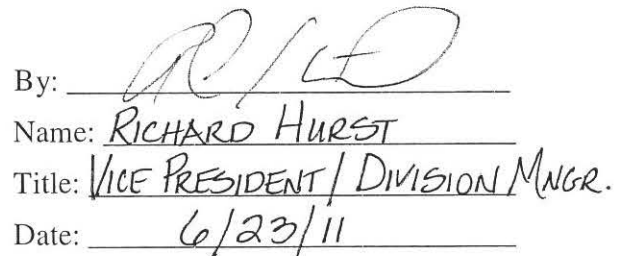 By:
Name: RICHARD HURST
Title: VICE PRESIDENT / DIVISION MNGR.
Date: 6/23/11